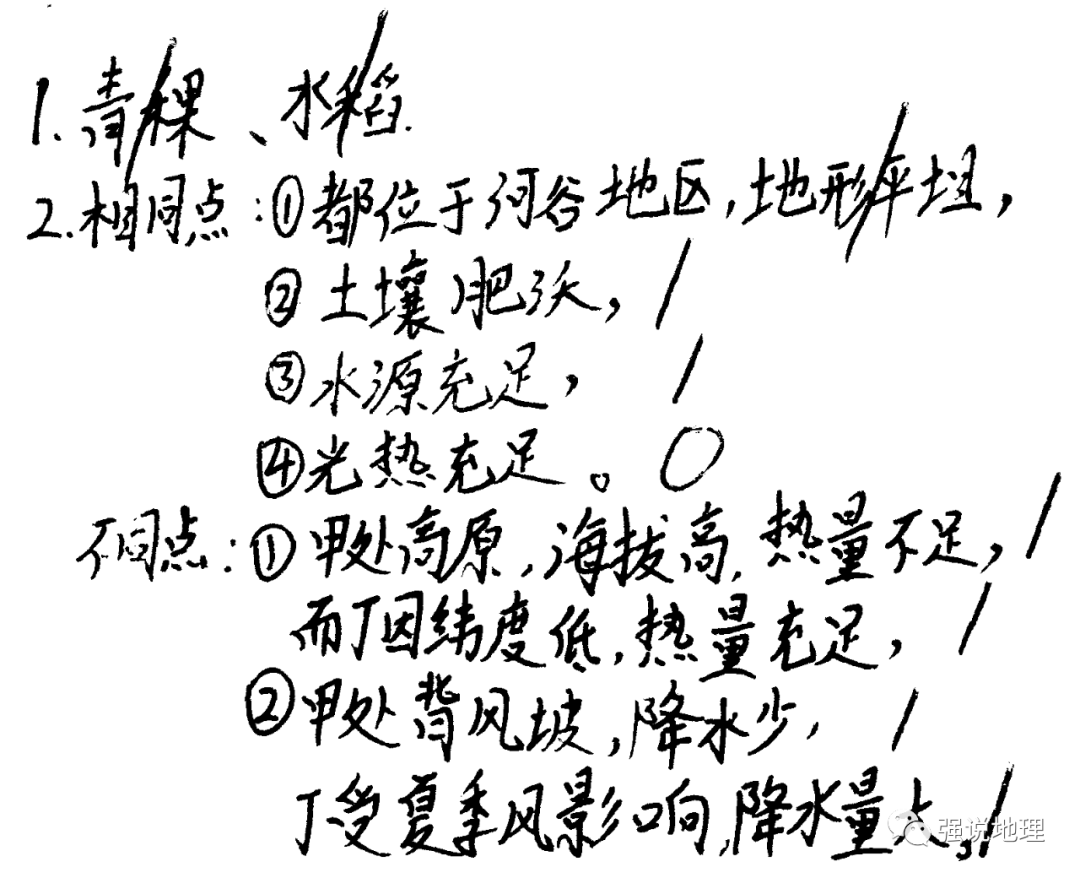 1.青稞、水稻.
2.相同点:①都位于河谷地区,地形平坦,
②土壤肥沃,
③水源充足,
④光热充足。
不同点:①甲处高原,海拔高,热量不足,
而丁因纬度低,热量充足,
②甲处背风坡,降水少,
丁受夏季风影响,降水量大。
强说地理